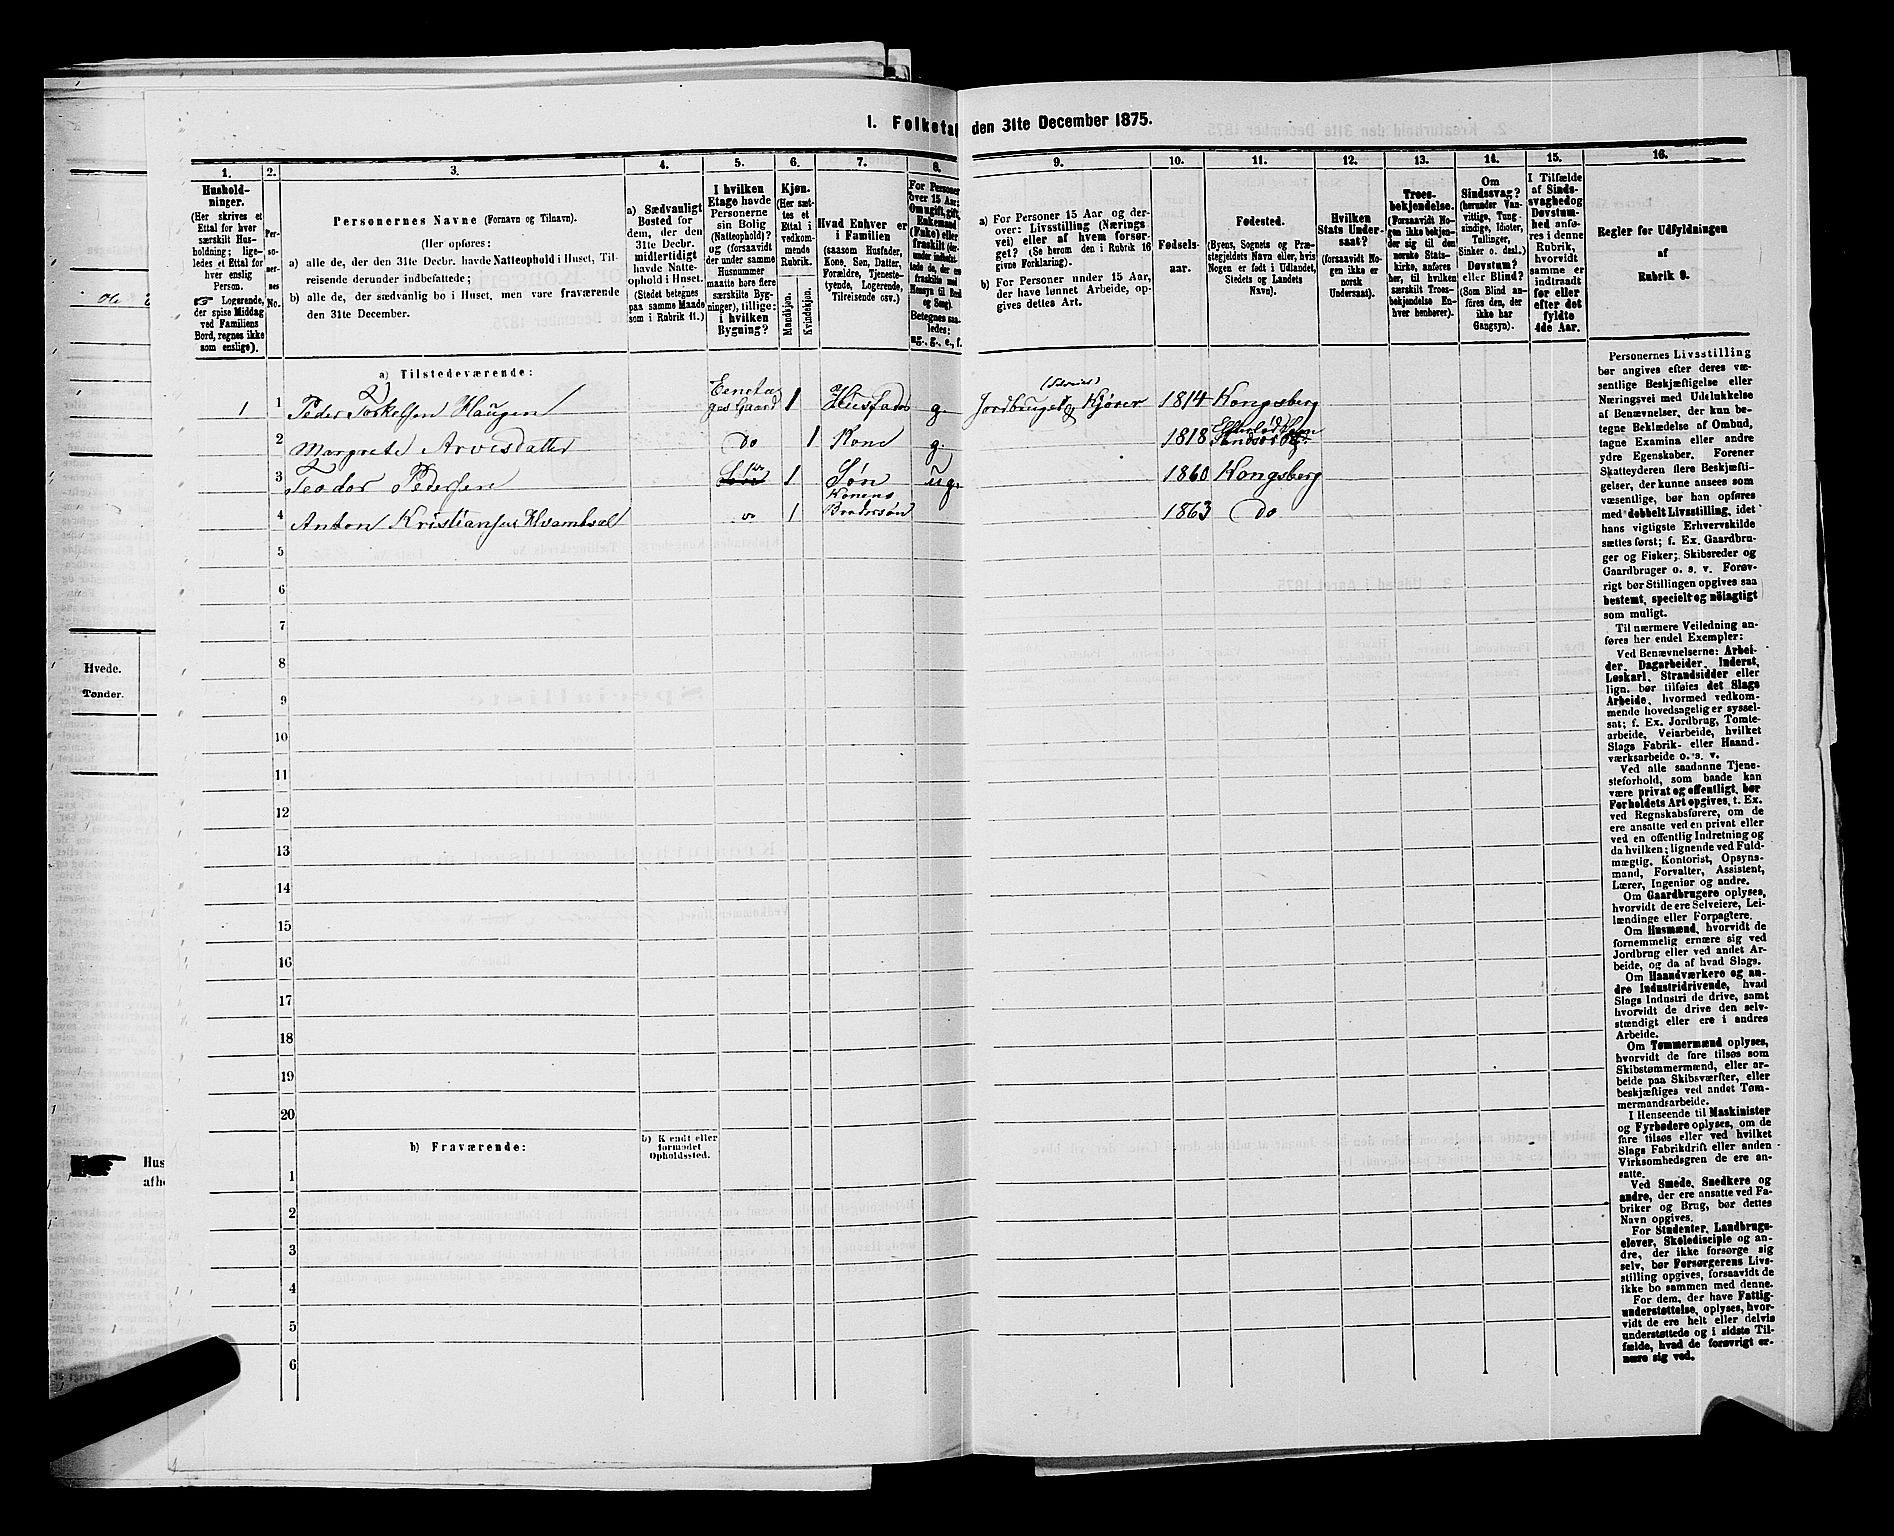 1. Folketal den 31te December 1875.
1.
Hushold-
ninger.
(Her skrives et
Ettal for hver
særskilt Hus-
holdning; lige-
ledes et Ettal for
hver enslig
Person.
Logerende,
der spise Middag
ved Familiens
Bord, regnes ikke
som enslige).
2.
Per-
so-
ner-
nes
No.
3.
Personernes Navne (Fornavn og Tilnavn).
(Her opføres:
a) alle de, der den 31te Decbr. havde Natteophold i Huset, Til-
reisende derunder indbefattede;
b) alle de, der sædvanlig bo i Huset, men vare fraværende
den 31te December.
4.
a) Sædvanligt
Bosted for
dem, der den
31te Decbr.
midlertidigt
havde Natte-
ophold i Huset.
(Stedet betegnes
paa samme Maade
som i Rubrik 11.)
5.
I hvilken
Etage havde
Personerne
sin Bolig
(Natteophold)?
og (forsaavidt
der under samme
Husnummer
maatte høre flere
særskilte Byg-
ninger), tillige:
i hvilken
Bygning?
6.
Kjøn.
(Her sæt-
tes et
Ettal i
vedkom-
mende
Rubrik.
Mandkjøn.
Kvindekjøn.
7.
Hvad Enhver er
i Familien
(saasom Husfader,
Kone, Søn, Datter,
Forældre, Tjeneste-
tyende, Logerende,
Tilreisende osv.)
8.
For Personer
over 15 Aar:
Om ugift, gift,
Enkemand
(Enke) eller
fraskilt
Betegnes saa-
ledes:
ug., g., e., f.
9.
a) For Personer 15 Aar og der-
over: Livsstilling (Nærings
vei) eller af hvem forsør
get? (Se herom den i Rubrik 16
givne Forklaring).
b) For Personer under 15 Aar,
der have lønnet Arbeide, op-
gives dettes Art.
10.
Fødsels-
aar.
11.
Fødested.
(Byens, Sognets og Præ-
stegjeldets Navn eller, hvis
Nogen er født i Udlandet,
Stedets og Landets
Navn).
12.
Hvilken
Stats Under-
saat?
(forsaavidt No-
gen ikke er
norsk
Undersaat).
13.
Troes-
bekjendelse.
(Forsaavidt No-
gen ikke bekjen-
der sig til den
norske Stats-
kirke, anføres
her, til hvilken
særskilt Troes-
bekjendelse En-
hver henhører).
14.
Om
Sindssvag?
(herunder Van-
vittige, Tung-
sindige, Idioter,
Tullinger,
Sinker o. desl.)
Døvstum?
eller Blind?
(Som Blind an-
føres den, der
ikke har
Gangsyn).
15.
I Tilfælde
af Sinds-
svaghed og
Døvstum-
hed anfø-
res i denne
Rubrik,
hvorvidt
samme er
indtraadt
før eller
efter det
fyldte
4de Aar.
16.
Regler for Udfyldningen
af
Rubrik 9.
a) Tilstedeværende:
1 1 Peder Torkelsen Haugen Eeneta ges Gaard 1 Husfader g. Jordbruger & Kjører 1814 Kongsberg
2 Margrete Arvesdatter Do 1 Kone g. 1818
3 Teodor Pedersen Do 1 Søn ug. 1860 Kongsberg
4 Anton Kristiansen Do 1 Konens Brodersøn 1863 Do
5
6
7
8
9
10
11
12
13
14
15
16
17
18
19
20
b) Fraværende:
b) Kjendt eller
formodet
Opholdssted.
1
2
3
4
5
6
Personernes Livsstilling
bør angives efter deres væ-
sentlige Beskjæftigelse eller
Næringsvei med Udelukkelse
af Benævnelser, der kun be-
tegne Beklædelse af Ombud,
tagne Examina eller andre
ydre Egenskaber. Forener
Skatteyderen flere Beskjæfti-
gelser, der kunne ansees som
væsentlige, bør han opføres
med dobbelt Livsstilling, idet
hans vigtigste Erhvervskilde
sættes først; f. Ex. Gaardbru-
ger og Fisker; Skibsreder og
Gaardbruger o. s. v. Forøv-
rigt bør Stillingen opgives saa
bestemt, specielt og nøiagtigt
som muligt.
Til nærmere Veiledning an-
føres her endel Exempler:
Ved Benævnelserne: Arbei-
der, Dagarbeider, Inderst,
Løskarl, Strandsidder eller
lign. bør tilføies det Slags
Arbeide, hvormed vedkom-
mende hovedsagelig er syssel-
sat; f. Ex. Jordbrug, Tomte-
arbeide, Veiarbeide, hvilket
Slags Fabrik- eller Haand-
værksarbeide o. s. v.
Ved alle saadanne Tjene-
steforhold, som baade kan
være privat og offentligt, bør
Forholdets Art opgives, t. Ex.
ved Regnskabsførere, om de
ere ansatte ved en privat eller
ved en offentlig Indretning og
da hvilken; lignende ved Fuld-
mægtig, Kontorist, Opsyns-
mand, Forvalter, Assistent,
Lærer, Ingeniør og andre.
Om Gaardbrugere oplyses,
hvorvidt de ere Selveiere, Lei-
lændinge eller Forpagtere.
Om Husmænd, hvorvidt de
fornemmelig ernære sig ved
Jordbrug eller ved andet Ar-
beide, og da af hvad Slags.
Om Haandværkere og an-
dre Industridrivende, hvad
Slags Industri de drive, samt
hvorvidt de drive den selv-
stændigt eller ere i andres
Arbeide.
Om Tømmermænd oplyses,
hvorvidt de fare tilsøs som
Skibstømmermænd, eller ar-
beide paa Skibsværfter, eller
beskjæftiges ved andet Tøm-
mermandsarbeide.
I Henseende til Maskinister
og Fyrbødere oplyses, om de
fare tilsøs eller ved hvilket
Slags Fabrikdrift eller anden
Virksomhedsgren de ere an-
satte.
Ved Smede, Snedkere og
andre, der ere ansatte ved Fa-
briker og Brug, bør dettes
Navn opgives.
For Studenter, Landbrugs-
elever, Skoledisciple og an-
dre, der ikke forsørge sig
selv, bør Forsørgerens Livs-
stilling opgives, forsaavidt de
ikke bo sammen med denne.
For dem, der have Fattig-
understøttelse, oplyses, hvor-
vidt de ere helt eller delvis
understøttede og i sidste Til-
fælde, hvad de forøvrigt er-
nære sig ved.
Hvede.
Tønder.
Hus
afh